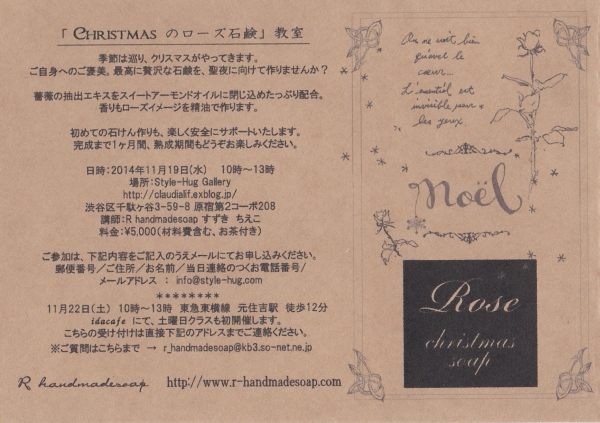 「 CHRISTMAS のローズ石鹸」教室
季節は巡り、クリスマスがやってきます。
ご自身へのご褒美。最高に贅沢な石鹸を、聖夜に向けて作りませんか？
薔薇の抽出エキスをスイートアーモンドオイルに閉じ込めたっぷり配合。
香りもローズイメージを精油で作ります。
初めての石けん作りも、楽しく安全にサポートいたします。
完成まで1ヶ月間、熟成期間もどうぞお楽しみください。
日時：2014年11月19日(水)　10時〜13時
場所：Style-Hug Gallery
http://claudialif.exblog.jp/
渋谷区千駄ヶ谷3-59-8 原宿第2コーポ208
講師：R handmadesoap すずき ちえこ
料金：¥5,000(材料費含む、お茶付き)
ご参加は、下記内容をご記入のうえメールにてお申し込みください。
郵便番号／ご住所／お名前／当日連絡のつくお電話番号／
メールアドレス　：　info@style-hug.com
********
11月22日(土)　10時〜13時　東急東横線　元住吉駅　徒歩12分
idacafe にて、土曜日クラスも初開催します。
こちらの受け付けは直接下記のアドレスまでご連絡ください。
※ご質問はこちらまで → r_handmadesoap@kb3.so-net.ne.jp
R handmadesoap　http://www.r-handmadesoap.com
On ne voit bien
qu'avec le
cœur...
L'essentiel est
invisible pour
les yeux.
noël
Rose
christmas
soap